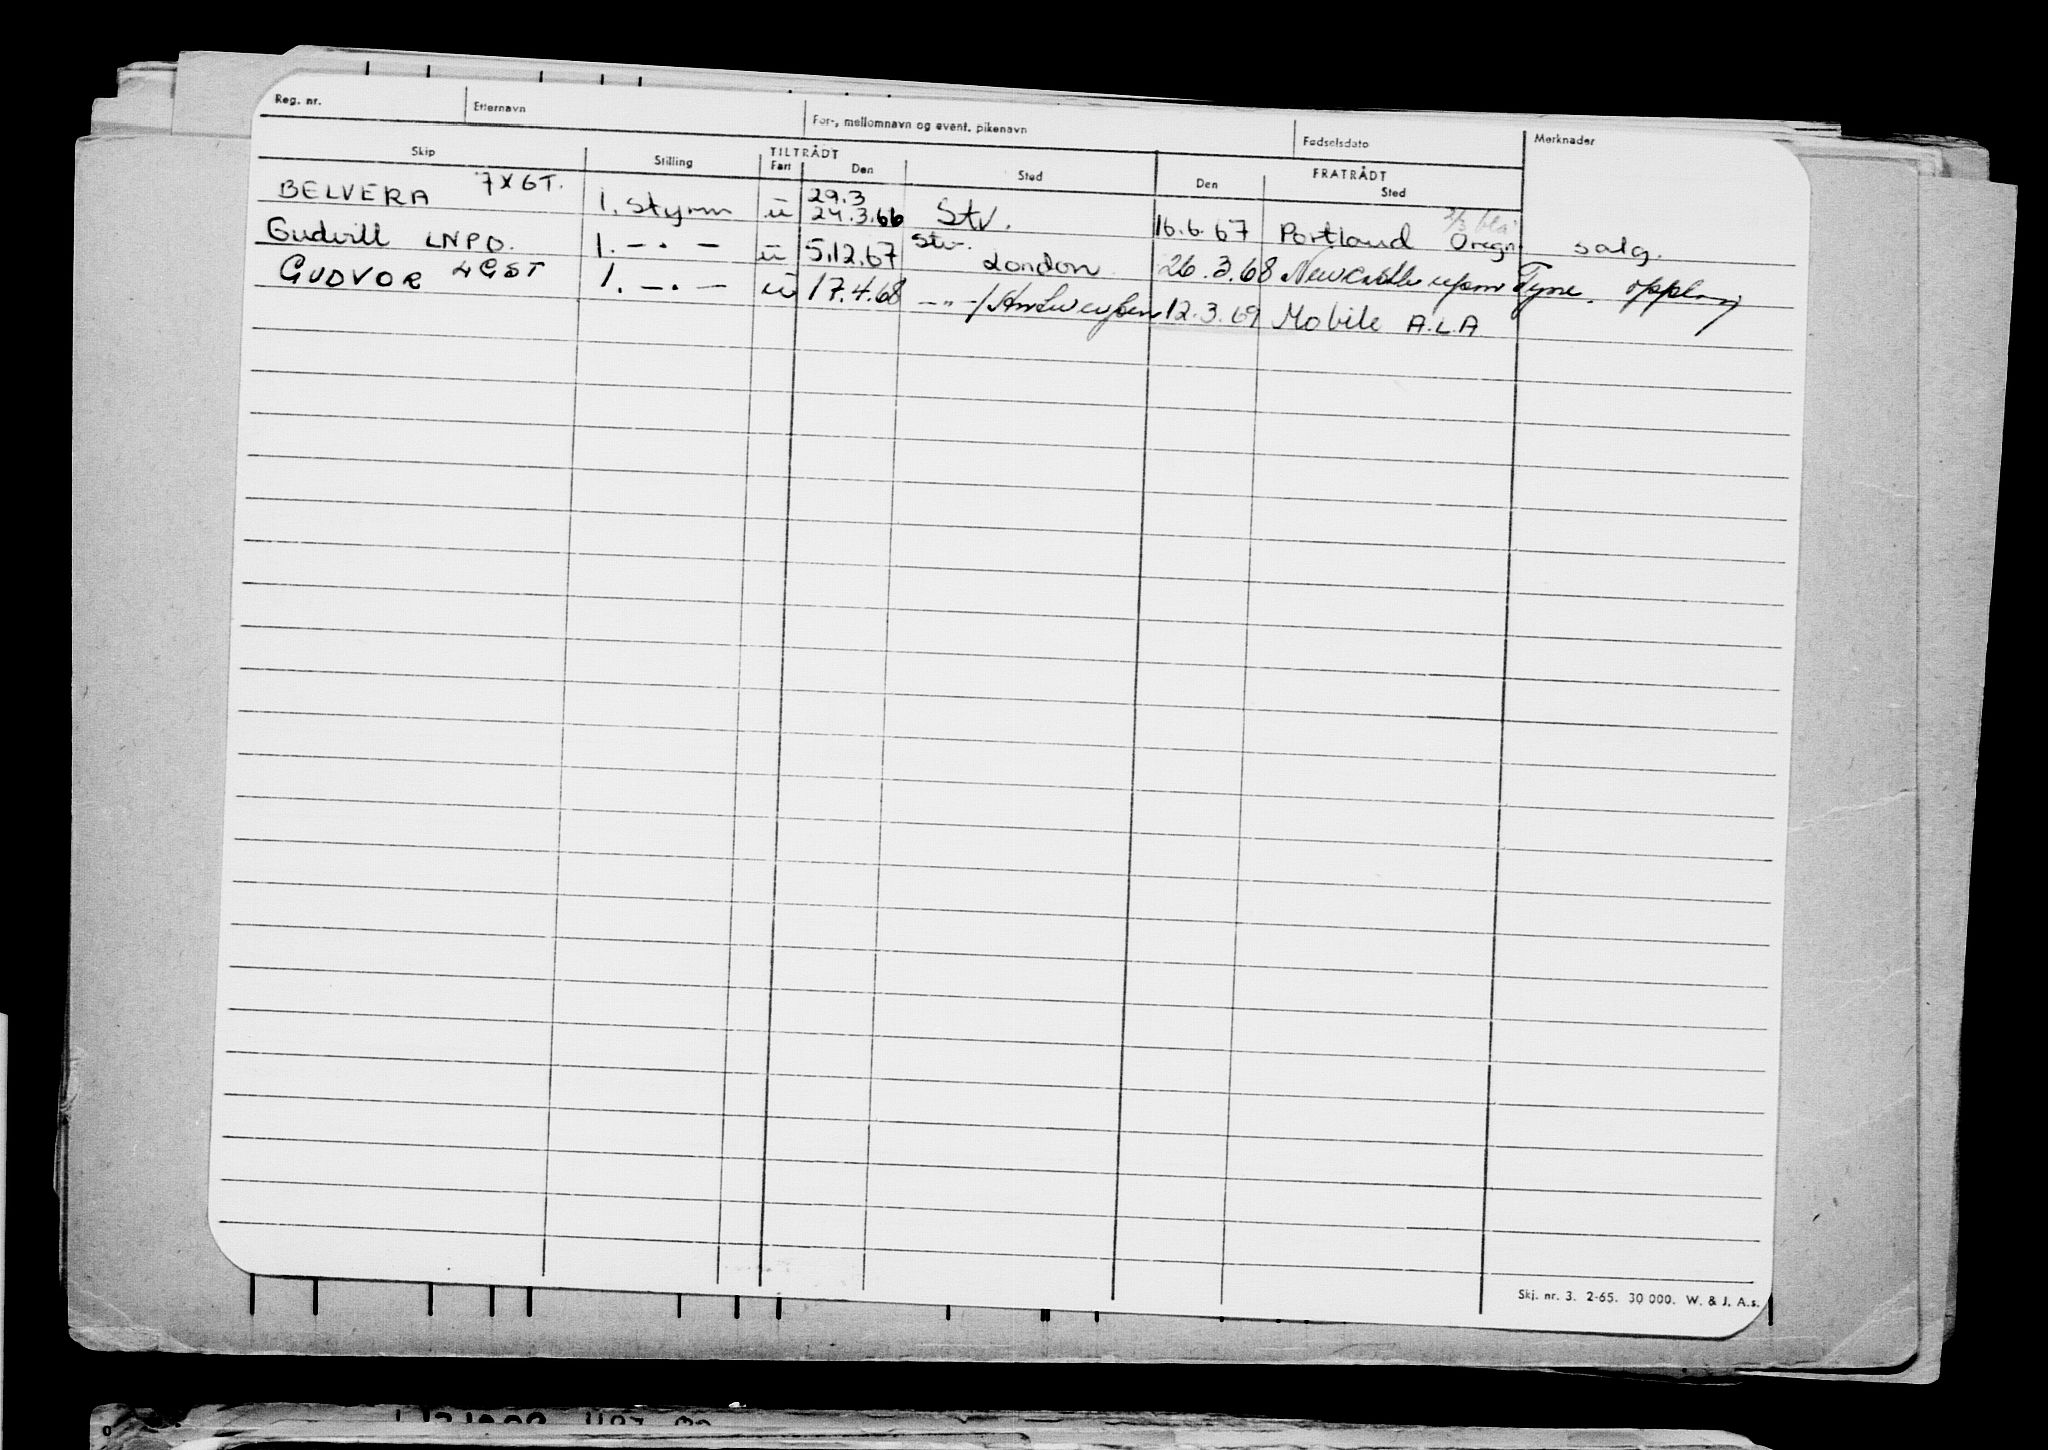 Reg. nr. Etternavn For-, mellomnavn og event. pikenavn Fødselsdato Merknader
Skip Stilling TILTRÅDT FRATRÅDT
Fart Den Sted Den Sted
29.3
BELVERA 7X6T. 1. styrm u 24.3.66 Stv. 16.6.67 Portland Oregn salg.
Gudvill LNPO. 1. — . — u 5.12.67 Stv. London 26.3.68 Newcastle upon Tyne. opplag
GUDVOR 4GST 1. — . — u 17.4.68 — " — / Antwerpen 12.3.69 Mobile A.L.A
Skj. nr. 3. 2-65. 30 000. W. & J. A.s.